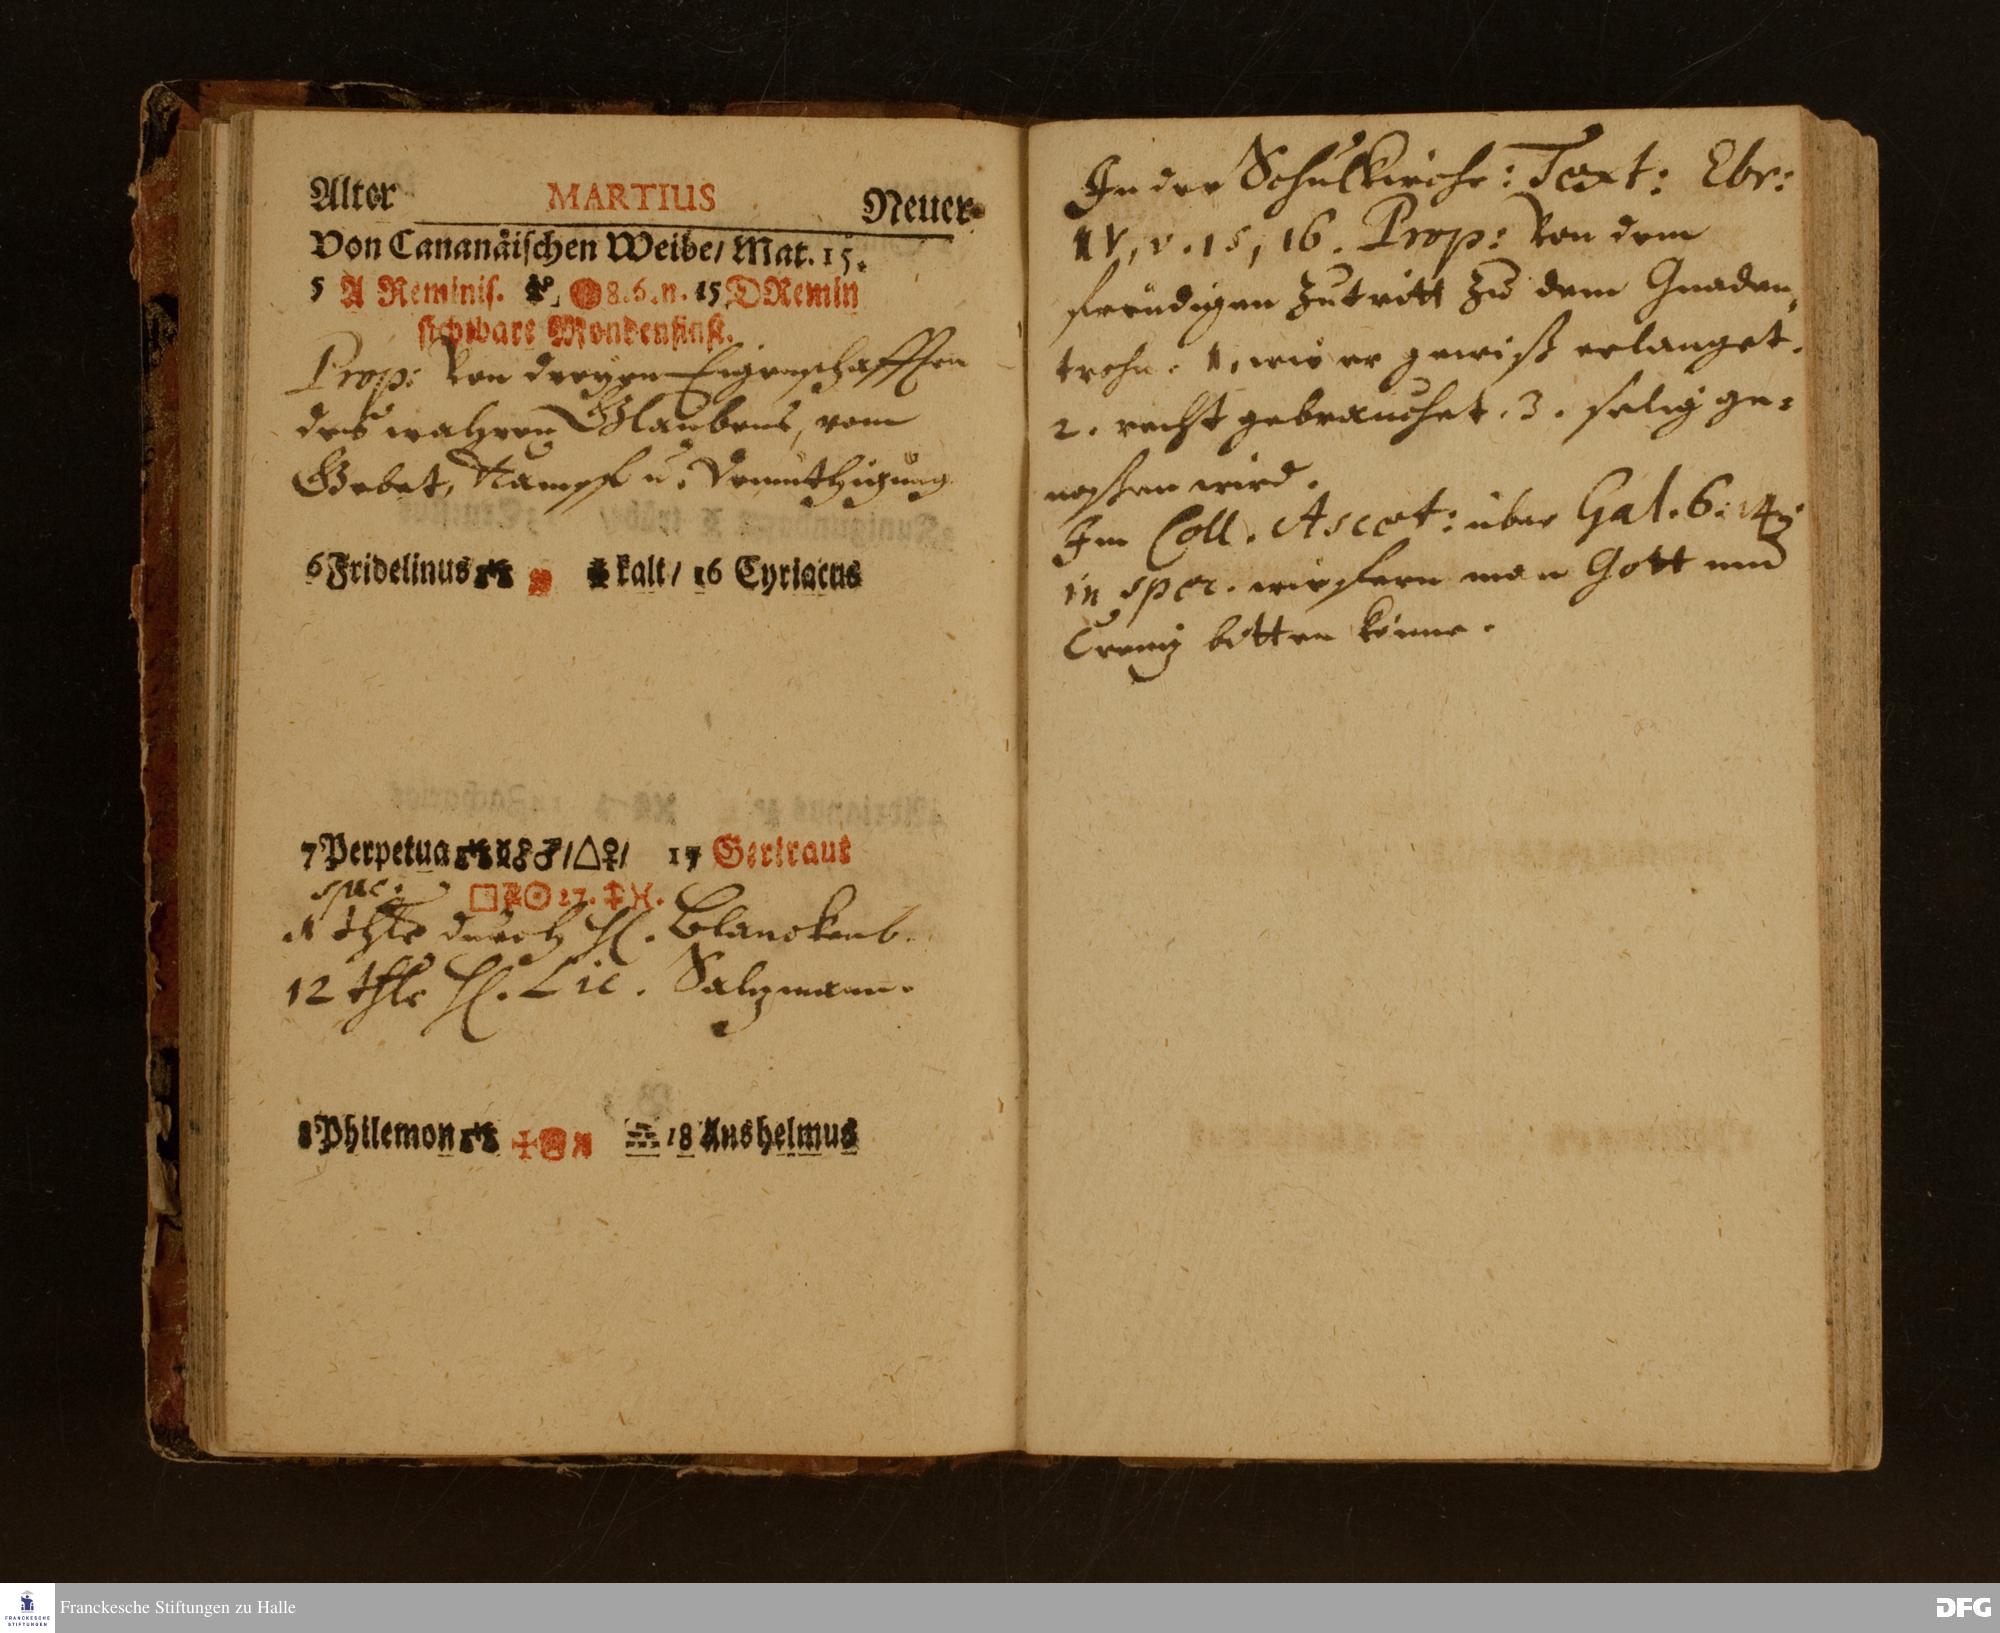 Alter MARTIUS Neuer
Von Cananäischen Weibe/ Mat. 15.
5 A Reminis. 8. 6. n. 15 D Remin
sichtbare Mondenfinst.
Prop: Von dreyen Eigenschafften
des wahren Glaubens, vom
Gebet, Kampff u. Demüthigung
6 Fridelinus kalt/ 16 Cyriacus
7 Perpetua ☿ ♂/△♀/ 17 Gertraut
□ ☉ 27. ♓.
1 thlr durch H. Blanckenb.
12 thlr H. Lic. Saltzmann.
8 Philemon 18 Anshelmus
In der Schulkirche: Text: Ebr:
IV, v. 15, 16. Prop: Von dem
freudigen Zutritt zu dem Gnaden-
trohn. 1, wie er gewiß erlanget.
2. recht gebrauchet. 3. selig ge=
nossen wird.
Im Coll. Ascet: über Gal. 6: 14
in spec. wiefern man Gott umb
Creutz bitten könne.
Franckesche Stiftungen zu Halle
FRANCKESCHE
STIFTUNGEN
DFG